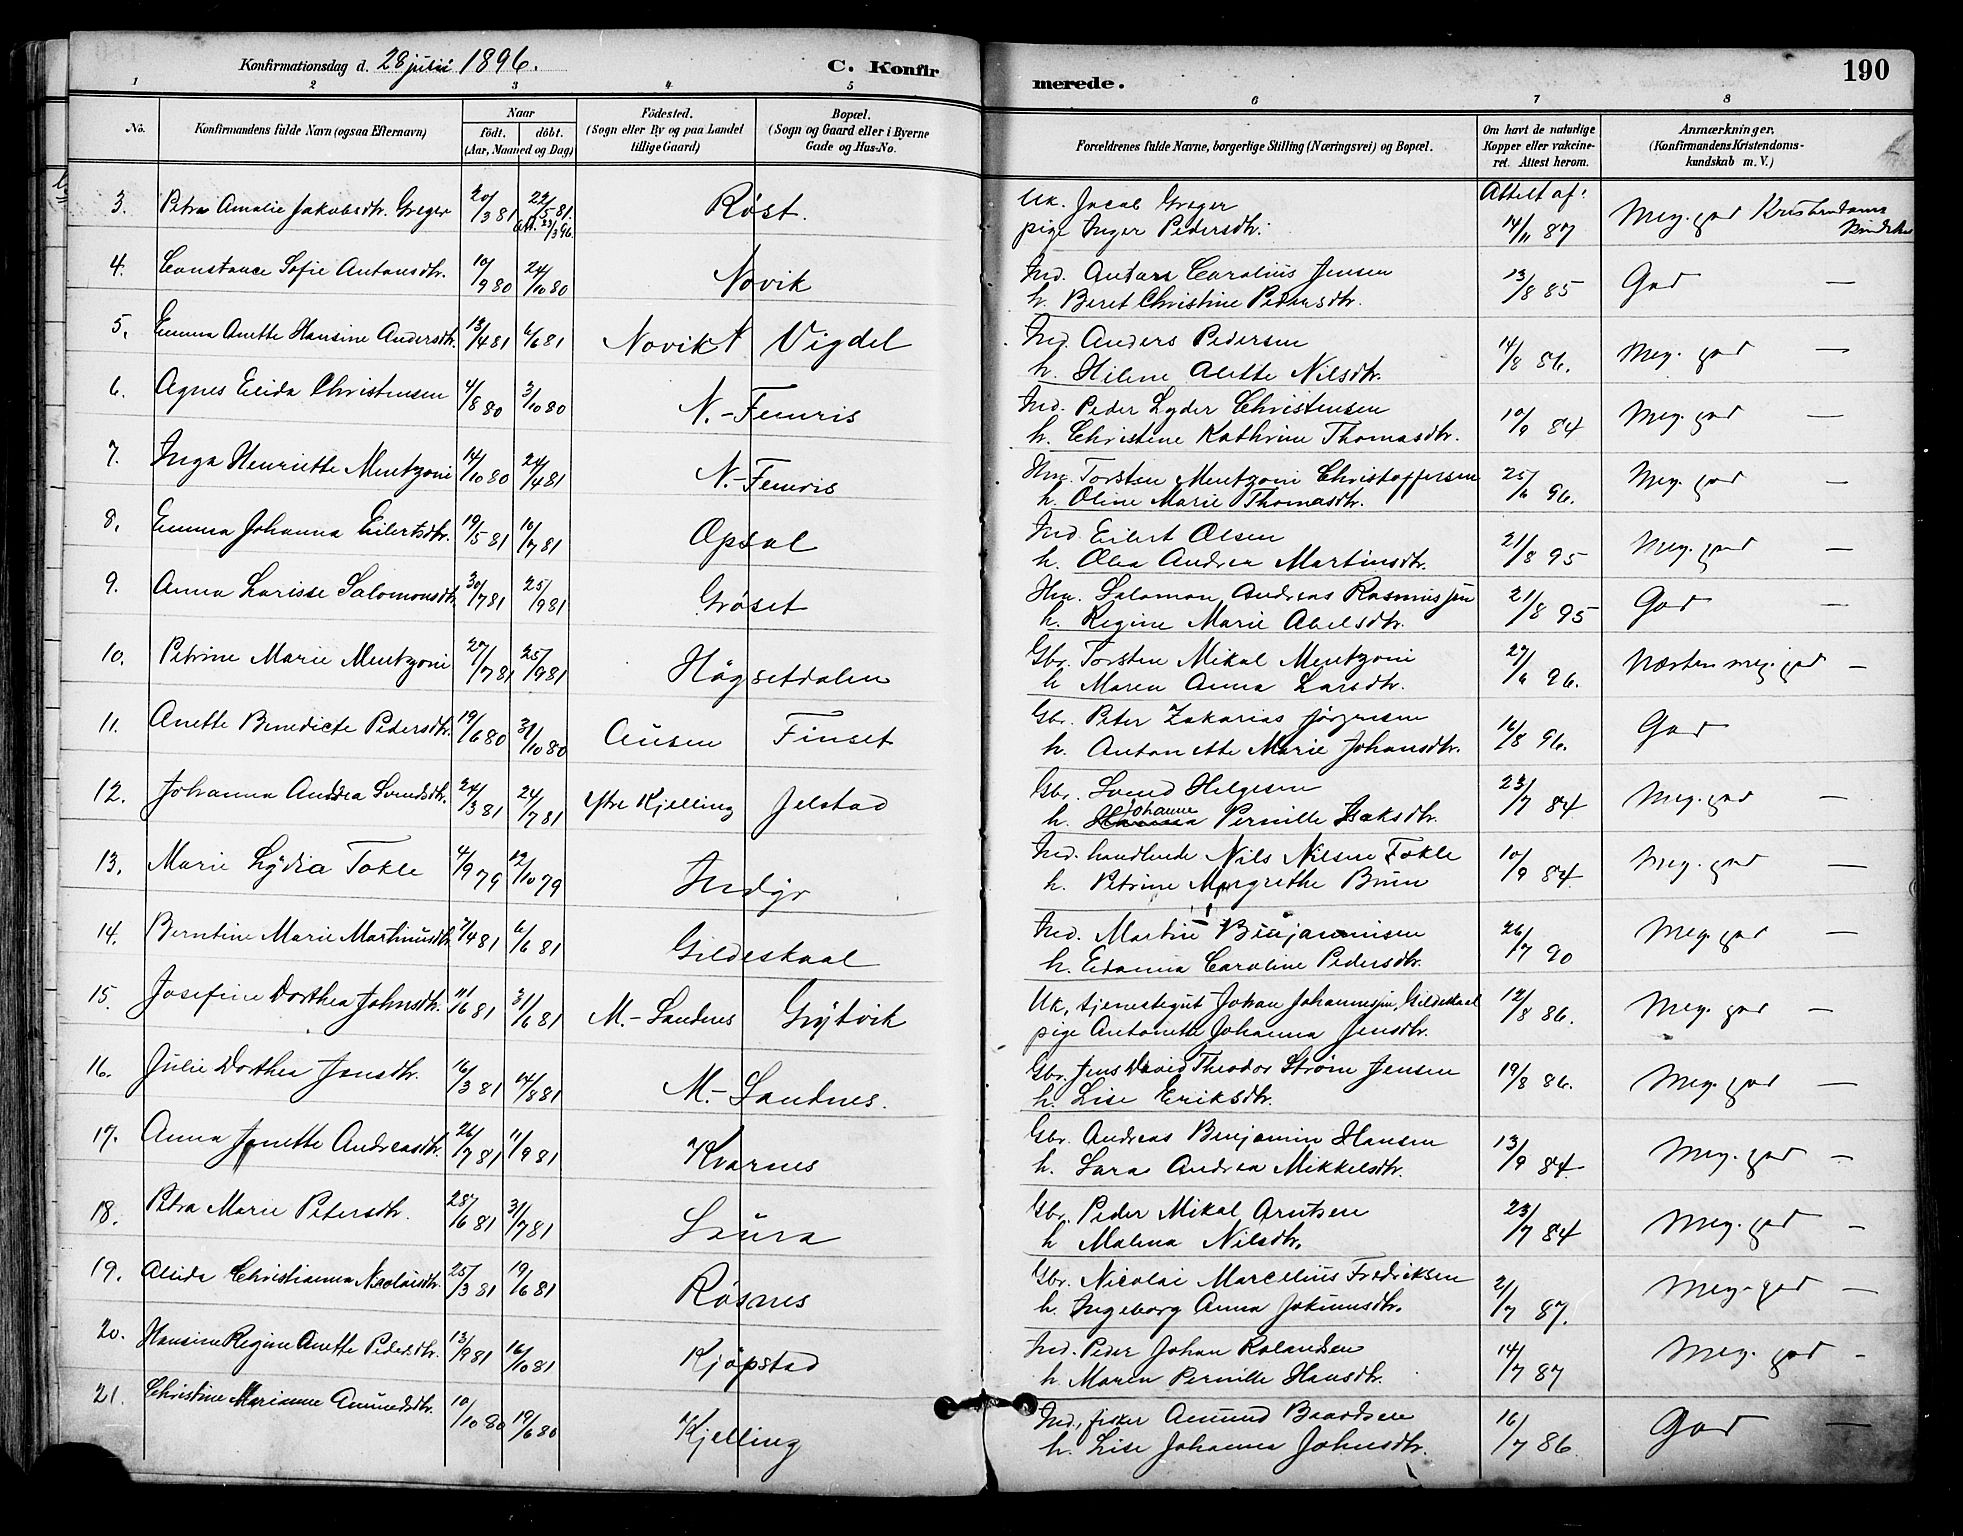 Konfirmationsdag d. 28 juni 1896. C. Konfirmerede. 190
1 2 3 4 5 6 7 8
No. Konfirmandens fulde Navn (ogsaa Efternavn) Naar født. døbt. (Aar, Maaned og Dag) Fødested. (Sogn eller By og paa Landet tillige Gaard) Bopæl. (Sogn og Gaard eller i Byerne Gade og Hus-No. Forældrenes fulde Navne, borgerlige Stilling (Næringsvei) og Bopæl. Om havt de naturlige Kopper eller vakcineret. Attest herom. Anmærkninger. (Konfirmandens Kristendomskundskab m. V.)
3. Petra Amalie Jakobsdtr. Greger 20/3 81 22/5 81. Røst. Uk. Jacob Greger Attest af: 14/11 87 Meg. god Kristendoms
pige Inger Pedersdtr.
4. Constance Sofie Antonsdtr. 10/9 80 24/10 80 Novik Ind. Anton Carolius Jensen 13/8 85 God —
h. Beret Christine Pedersdtr.
5. Emma Anette Hansine Andersdtr. 13/4 81 6/6 81 Novik N Vigdel Ind. Anders Pedersen 14/8 86. Meg. god —
h. Hilene Alette Nilsdtr.
6. Agnes Elida Christensen 4/8 80 3/10 80 N.-Femris Ind. Peder Lyder Christensen 10/9 84 Meg. god —
h. Christine Kathrine Thomasdtr.
7. Inga Henriette Mentzoni 14/10 80 24/4 81 N.-Femris Hm. Torsten Mentzoni Christoffersen 25/6 96. Meg. god —
h. Oline Marie Thomasdtr.
8. Emma Johanna Eilertsdtr. 19/5 81 10/7 81 Opsal Ind. Eilert Olsen 21/8 95 Meg. god —
h. Olea Andrea Martinsdtr.
9. Anna Larisse Salomonsdtr. 30/7 81 25/9 81 Grøset Hm. Salomon Andreas Rasmussen 21/8 95 God —
h. Regine Marie Abelsdtr.
10. Petrine Marie Mentzoni 27/7 81 25/9 81 Høgsetdalen Gbr. Torsten Mikal Mentzoni 27/6 96. Næsten meg. god —
h Maren Anna Larsdtr.
11. Anette Benedicte Pedersdtr. 19/6 80 31/10 80 Ausen Finset Gbr. Peter Zakarias Jørgensen 16/8 96. God
h. Antonette Marie Johansdtr.
12. Johanna Andrea Svendsdtr. 24/3 81 24/7 81 Ytre Kjelling Jelstad Gbr. Svend Helgesen 23/7 84 Meg. god —
h. Johanne Pernille Isaksdtr.
13. Marie Lydia Tokle 4/9 79 12/10 79 Indyr Ind. handlende Nils Nilsen Tokle 10/9 84. Meg. god —
h. Petrine Margrethe Bruun
14. Berntine Marie Martinusdtr. 7/4 81 6/6 81 Gildeskaal Ind. Martin Benjaminsen 26/7 90 Meg. god —
h. Edanna Caroline Pedersdtr.
15. Josefine Dorthea Johnsdtr. 11/6 81 31/6 81 M.-Sandnes Grytvik Uk, tjenestegut Johan Johannessen, Gildeskaal 12/8 86. Meg. god —
pige Antonette Johanna Jensdtr.
16. Julie Dorthea Jensdtr. 16/3 81 14/8 81 M.-Sandnes. Gbr. Jens David Theodor Strøm Jensen 19/8 86. Meg. god —
h. Lise Eriksdtr.
17. Anna Jenette Andreasdtr. 26/7 81 11/9 81 Kvarnes Gbr. Andreas Benjamin Hansen 13/9 84 Meg. god —
h. Sara Andrea Mikkelsdtr.
18. Petra Marie Petersdtr. 28/6 81 31/7 81 Saura Gbr. Peder Mikal Arntsen 23/7 84 Meg. god —
h Malena Nilsdtr.
19. Alida Christianna Nicolaisdtr. 25/3 81 19/6 81 Røsnes Gbr. Nicolai Marcelius Fredriksen 2/7 87. Meg. god —
h. Ingeborg Anna Jokumsdtr.
20. Hansine Regine Anette Pedersdtr. 13/9 81 16/10 81 Kjøpstad Ind. Peder Johan Rolandsen 14/7 87 Meg. god -
h Maren Pernille Hansdtr.
21. Christine Marianne Amundsdtr. 10/10 80 19/6 80 Kjelling Ind, fisker Amund Baardsen 16/7 86 God —
h. Lise Johanna Johnsdtr.